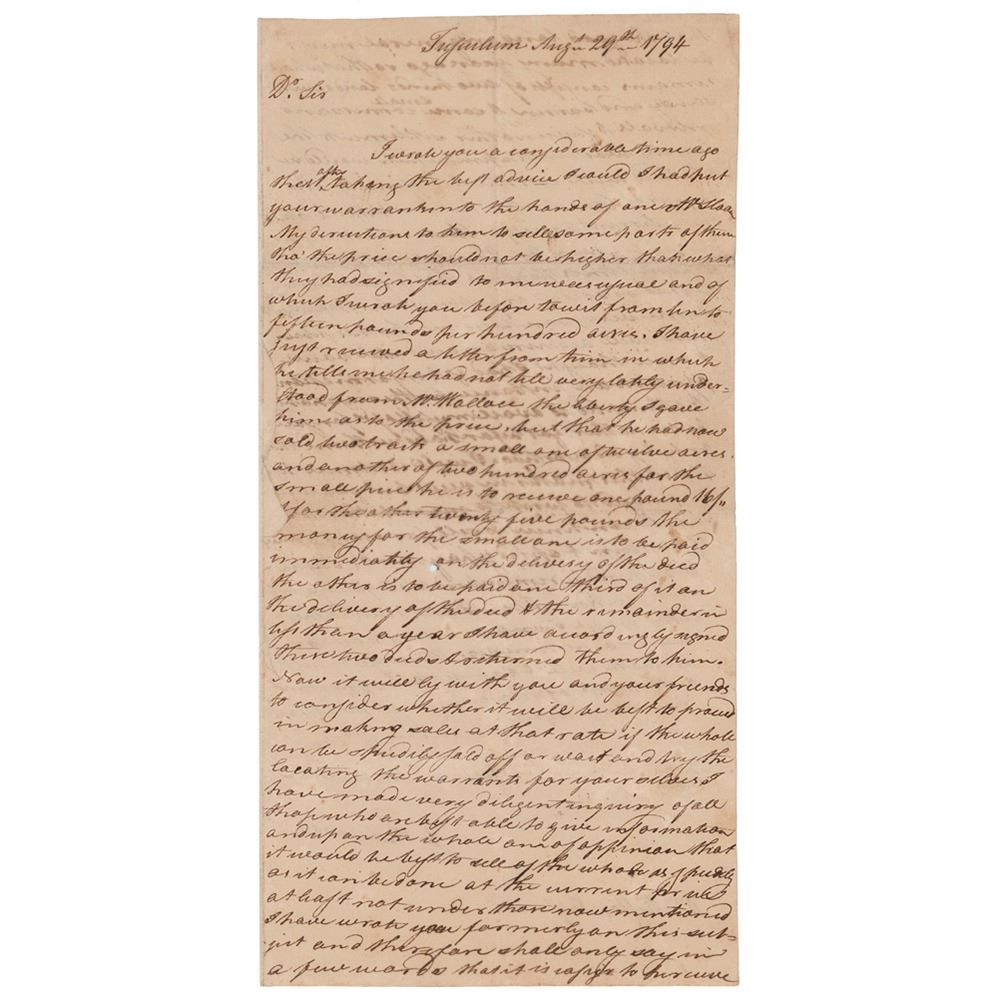 Tusculum Augst 29th 1794
Dr. Sir
I wrote you a considerable time ago
that after taking the best advice I could I had put
your warrants into the hands of one Mr. Sloan
My directions to him to sell some parts of them
tho' the price should not be higher than what
they had signified to me was usual and of
which I wrote you before to wit from ten to
fifteen pounds per hundred acres. I have
just received a letter from him in which
he tells me he had not till very lately under=
stood from Mr. Wallace the liberty I gave
him as to the price, but that he had now
sold two tracts a small one of twelve acres
and another of two hundred acres for the
small piece he is to receive one pound 16/
for the other twenty five pounds the
money for the small one is to be paid
immediately on the delivery of the deed
the other is to be paid one third of it on
the delivery of the deed & the remainder in
less than a year I have accordingly signed
these two deeds & returned them to him.
Now it will ly with you and your friends
to consider whether it will be best to proceed
in making sales at that rate if the whole
can be speedily sold off or wait and try the
locating the warrants for yourselves I
have made very diligent inquiry of all
those who are best able to give information
and upon the whole am of oppinion that
it would be best to sell of the whole as speedily
as it can be done at the current price
at least not under those now mentioned
I have wrote you formerly on this sub=
ject and therefore shall only say in
a few words that it is easy to perceive